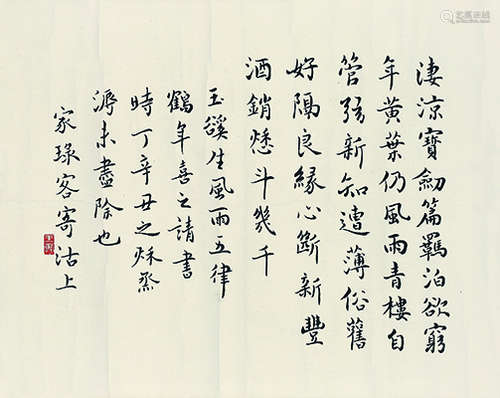 淒涼寶劒篇羈泊欲窮
年黃葉仍風雨青樓自
管弦新知遭薄俗舊
好隔良緣心斷新豐
酒銷愁斗幾千
玉谿生風雨五律
鶴年喜之請書
時丁辛丑之秌烝
溽未盡除也
家琭客寄沽上